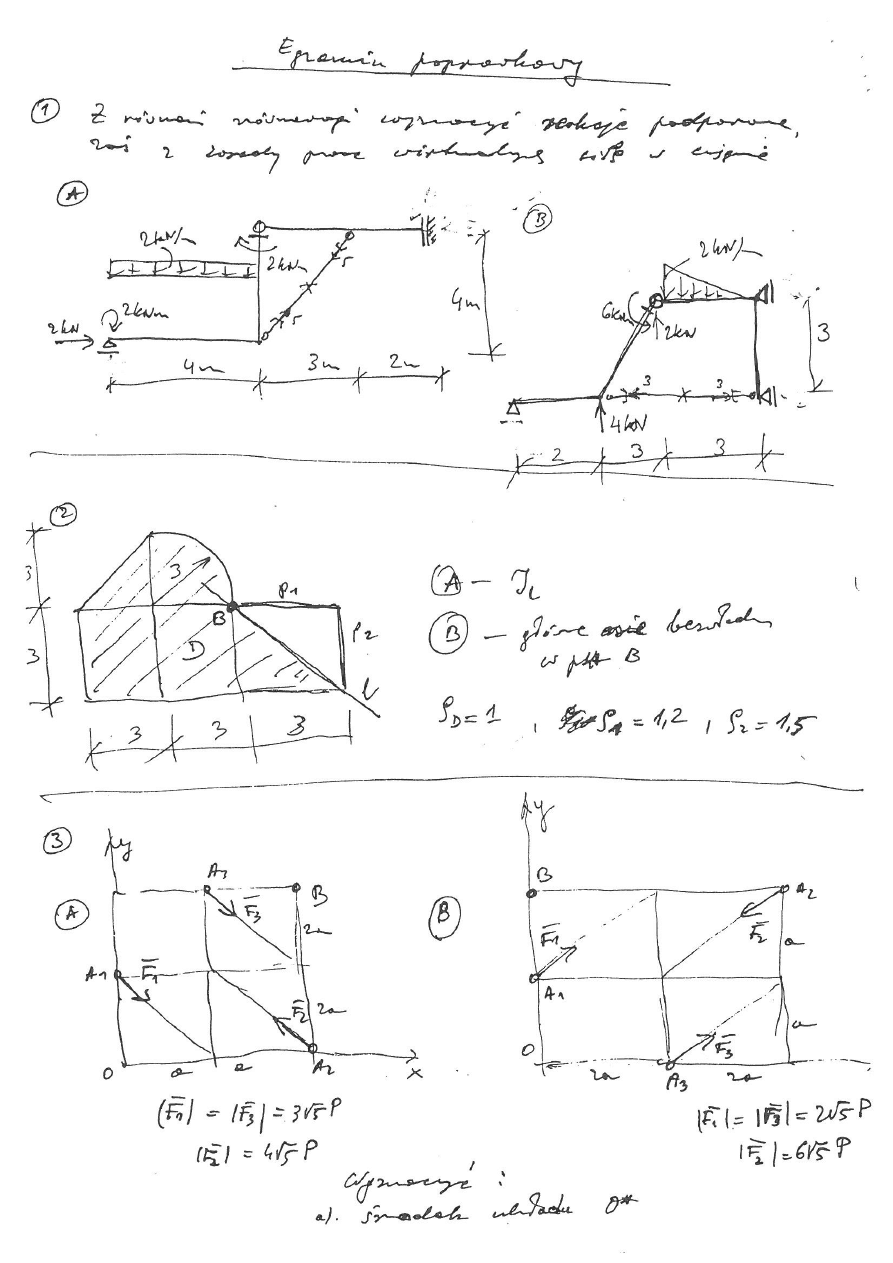 Egzamin poprawkowy
① Z równań równowagi wyznaczyć reakcje podporowe,
zaś z zasady prac wirtualnych siłę w cięgnie
Ⓐ
2kN/m
2kNm
5
2kN
2kNm
5
4m
4m
3m
2m
Ⓑ
2kN/m
6kNm
2kN
3
3
3
4kN
2
3
3
②
3
3
3
B
D
ρ1
ρ2
l
3
3
3
Ⓐ – Jl
Ⓑ – główne osie bezwładn
w pkt B
ρD = 1 , ρ1 = 1,2 , ρ2 = 1,5
③
Ⓐ
y
A3
B
F3
2a
A1
F1
F2
2a
O
a
a
A2
x
|F1| = |F3| = 3√5 P
|F2| = 4√5 P
Ⓑ
y
B
A2
F1
F2
a
A1
F3
a
O
2a
A3
2a
|F1| = |F3| = 2√5 P
|F2| = 6√5 P
Wyznaczyć :
a). środek układu O*